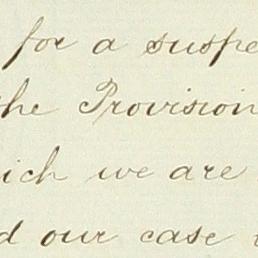 for a suspe
the Provision
ich we are
d our case